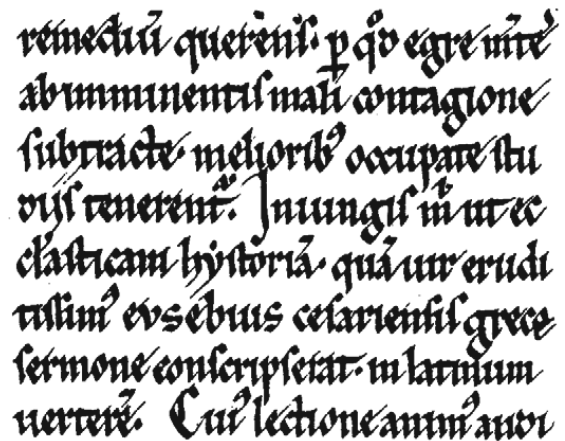 remediū querēns· ꝑ qͦd egre mīteˢ
ab imminentis mali contagione
subtracte· meliorib⁹ occupate stu
dijs tenerent᷑. Iniungis m̄ ut ec
cl̄asticam hystoriā· quā uir erudi
tissim⁹ eusebius cesariensis greco
sermone conscripserat· in latinum
uerterē. Cui⁹ lectione anim⁹ audi